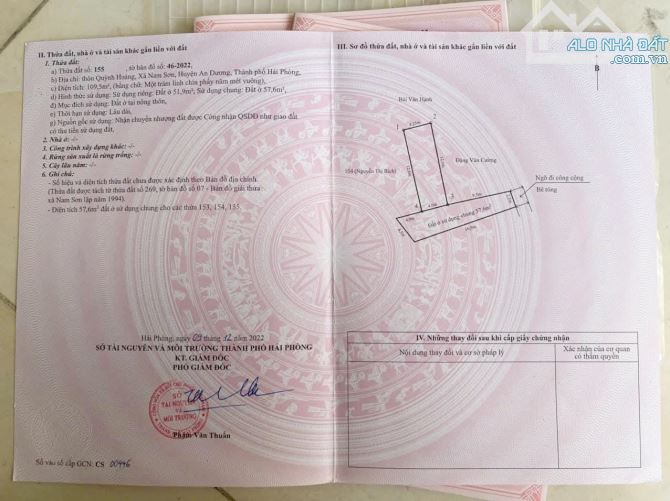 II. Thửa đất, nhà ở và tài sản khác gắn liền với đất
1. Thửa đất:
a) Thửa đất số: 155 , tờ bản đồ số: 46-2022,
b) Địa chỉ: thôn Quỳnh Hoàng, Xã Nam Sơn, Huyện An Dương, Thành phố Hải Phòng,
c) Diện tích: 109,5m², (bằng chữ: Một trăm linh chín phẩy năm mét vuông),
d) Hình thức sử dụng: Sử dụng riêng: Đất ở 51,9m²; Sử dụng chung: Đất ở 57,6m²,
đ) Mục đích sử dụng: Đất ở tại nông thôn,
e) Thời hạn sử dụng: Lâu dài,
g) Nguồn gốc sử dụng: Nhận chuyển nhượng đất được Công nhận QSDĐ như giao đất
có thu tiền sử dụng đất,
2. Nhà ở: -/-
3. Công trình xây dựng khác: -/-
4. Rừng sản xuất là rừng trồng: -/-
5. Cây lâu năm: -/-
6. Ghi chú:
- Số hiệu và diện tích thửa đất chưa được xác định theo Bản đồ địa chính.
(Thửa đất được tách từ thửa đất số 269, tờ bản đồ số 07 - Bản đồ giải thửa
xã Nam Sơn lập năm 1994)
- Diện tích 57,6m² đất ở sử dụng chung cho các thửa 153, 154, 155.
Hải Phòng, ngày 09 tháng 12 năm 2022
SỞ TÀI NGUYÊN VÀ MÔI TRƯỜNG THÀNH PHỐ HẢI PHÒNG
KT. GIÁM ĐỐC
PHÓ GIÁM ĐỐC
SỞ
TÀI NGUYÊN
VÀ
MÔI TRƯỜNG
Phạm Văn Thuấn
Số vào sổ cấp GCN: CS 00446
III. Sơ đồ thửa đất, nhà ở và tài sản khác gắn liền với đất
ALO NHÀ ĐẤT
.COM.VN
B
Bùi Văn Hạnh
1
2
154 (Nguyễn Thị Bích)
Đặng Văn Cường
4
3
Ngõ đi công cộng
Bê tông
Đất ở sử dụng chung 57,6m²
IV. Những thay đổi sau khi cấp giấy chứng nhận
Nội dung thay đổi và cơ sở pháp lý
Xác nhận của cơ quan
có thẩm quyền